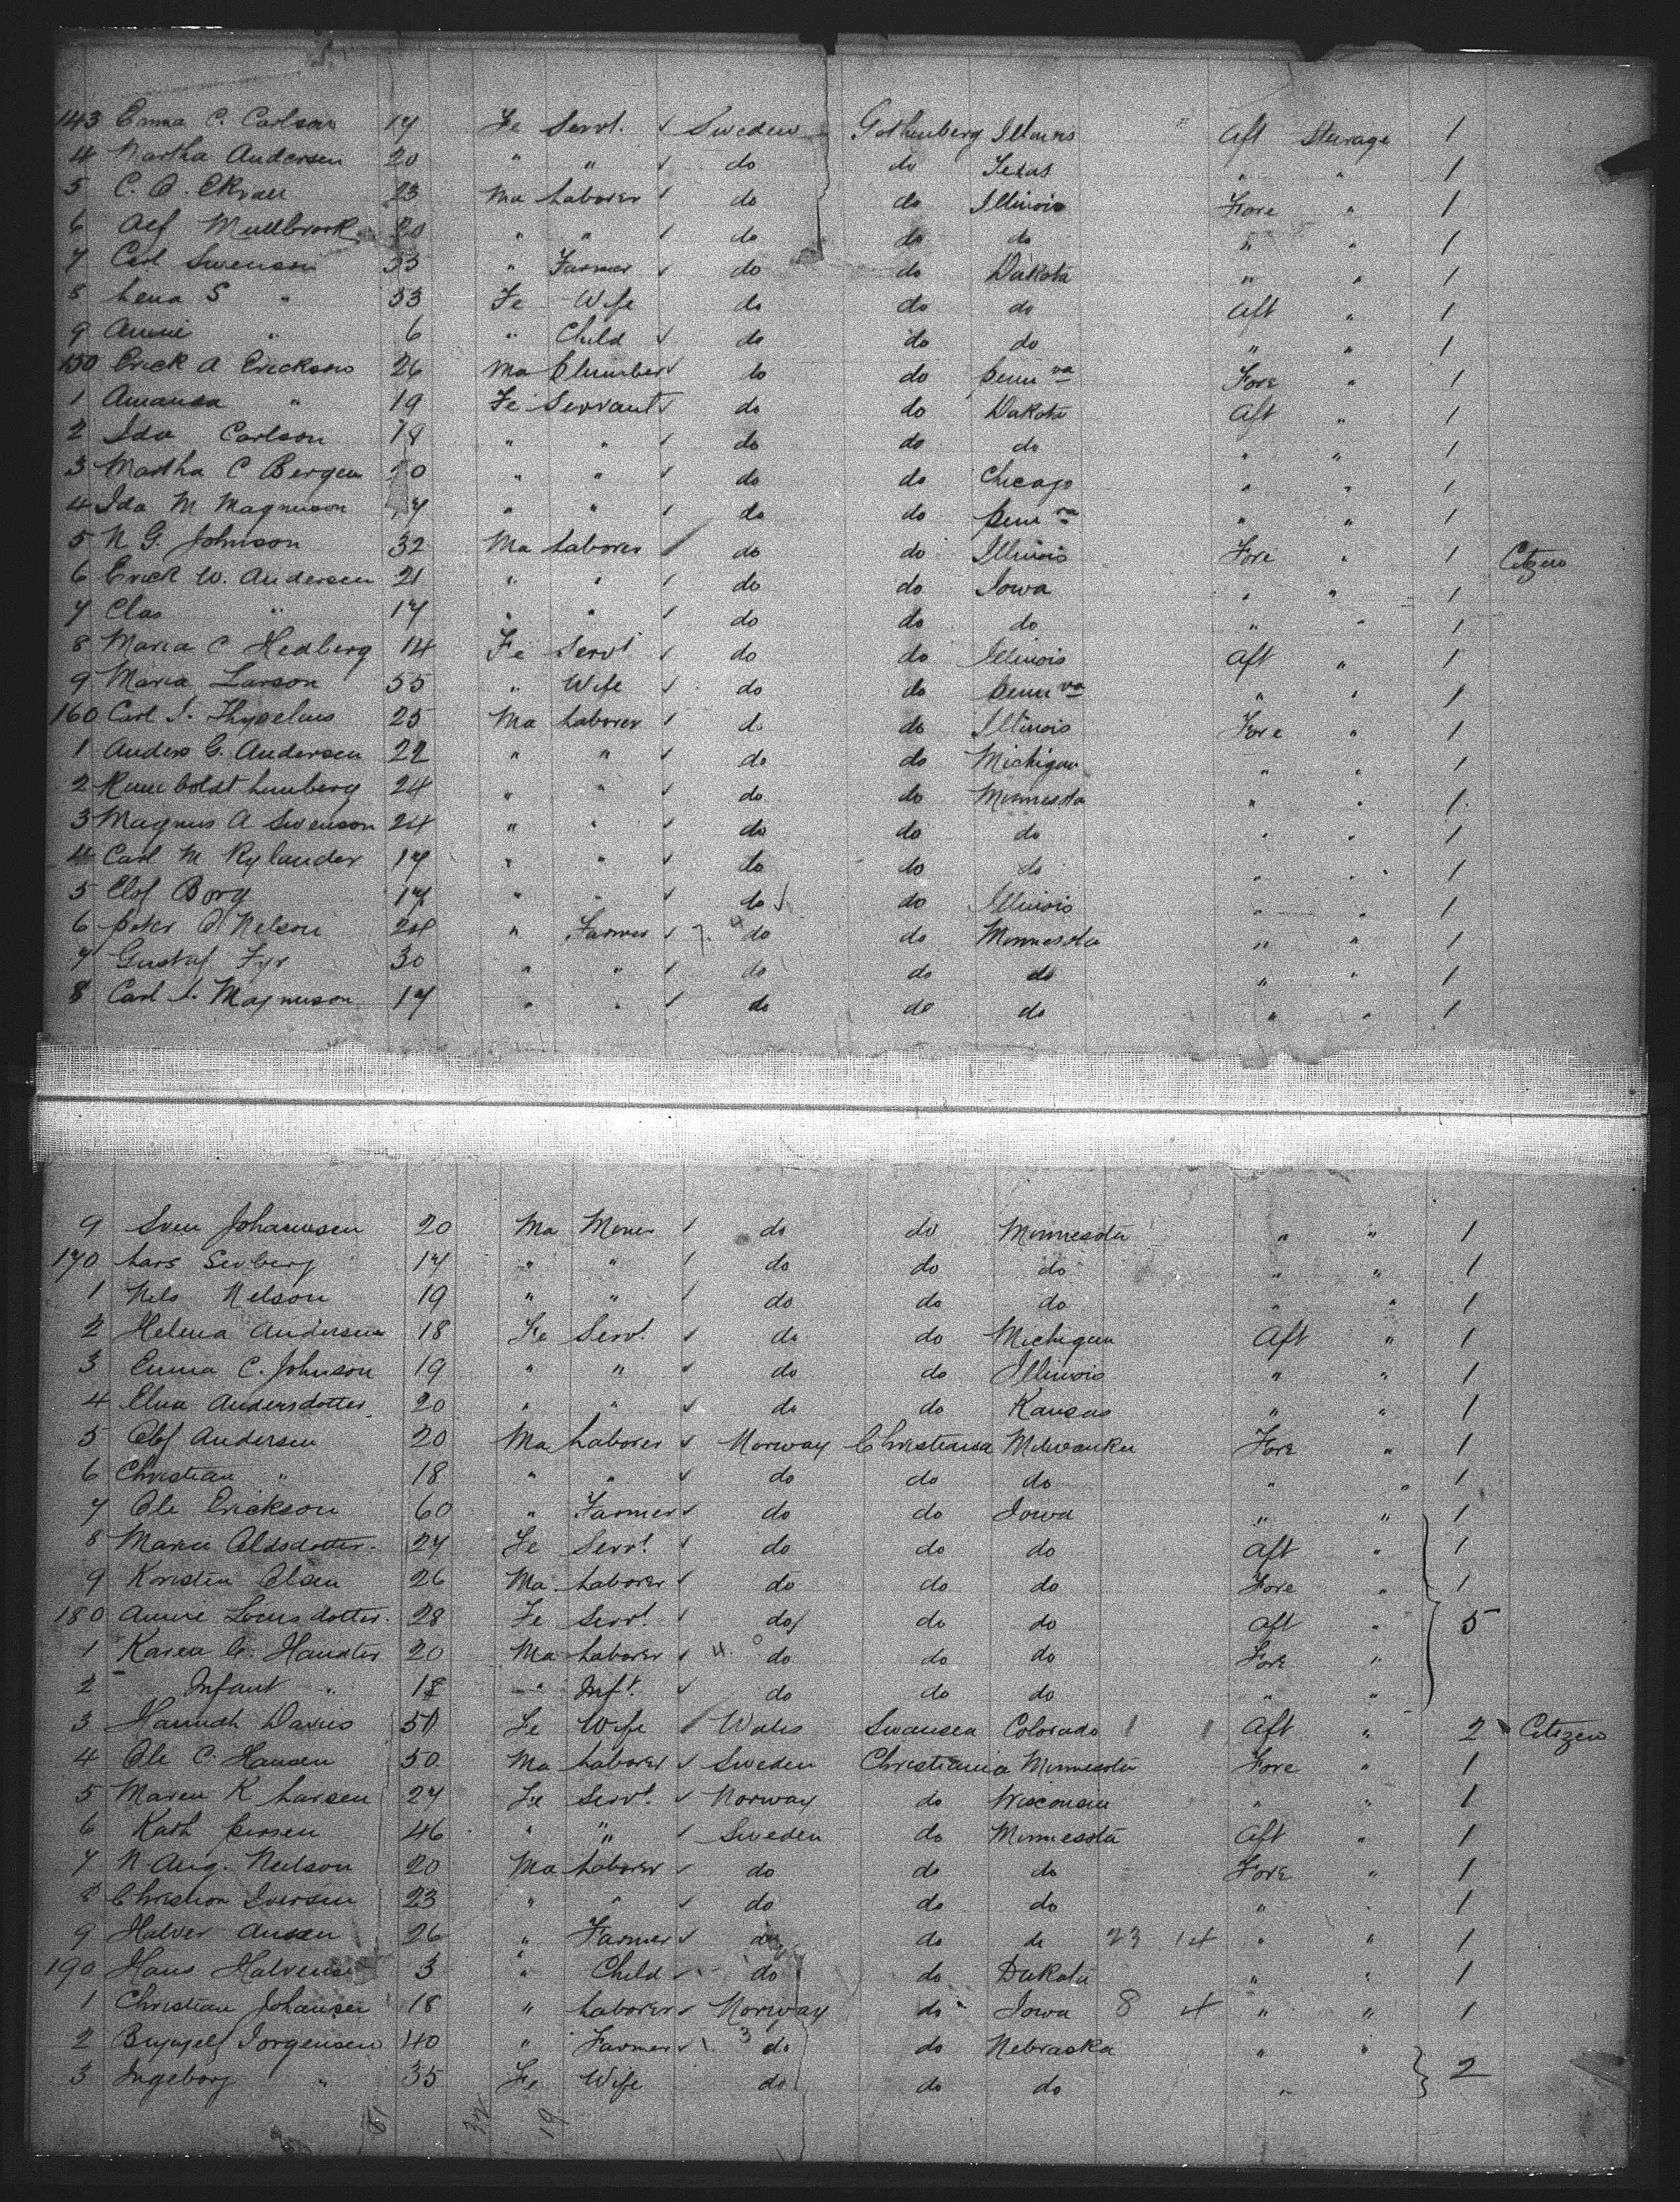 143 Emma C. Carlson 17 Fe Servt. ✓ Sweden Gothenberg Illinois Aft Steerage 1
4 Martha Andersen 20 " " ✓ do do Texas " " 1
5 C. A. Ekvall 23 Ma Laborer ✓ do do Illinois Fore " 1
6 Alf Mullbrock 20 " " ✓ do do do " " 1
7 Carl Swenson 53 " Farmer ✓ do do Dakota " " 1
8 Lena S " 53 Fe Wife do do do Aft " 1
9 Annie " 6 " Child ✓ do do do " " 1
150 Erick A Erickson 26 Ma Plumber ✓ do do Penn va Fore " 1
1 Amanda " 19 Fe Servant ✓ do do Dakota Aft " 1
2 Ida Carlson 18 " " ✓ do do do " " 1
3 Martha C Bergen 20 " " ✓ do do Chicago " " 1
4 Ida M Magnuson 17 " " ✓ do do Penn va " " 1
5 N G. Johnson 32 Ma Laborer ✓ do do Illinois Fore " 1 Citizen
6 Erick W. Andersen 21 " " ✓ do do Iowa " " 1
7 Clas " 17 " " ✓ do do do " " 1
8 Maria C Hedberg 14 Fe Servt ✓ do do Illinois Aft " 1
9 Maria Larson 55 " Wife ✓ do do Penn va " " 1
160 Carl J. Thyselius 25 Ma Laborer ✓ do do Illinois Fore " 1
1 Anders G. Andersen 22 " " ✓ do do Michigan " " 1
2 Humboldt Lunberg 24 " " ✓ do do Minnesota " " 1
3 Magnus A Swenson 24 " " ✓ do do do " " 1
4 Carl M Rylander 17 " " ✓ do do do " " 1
5 Olof Borg 17 " " ✓ do do Illinois " " 1
6 Peter A Nelson 24 " Farmer ✓ do do Minnesota " " 1
7 Gustaf Fyr 30 " " ✓ do do do " " 1
8 Carl J. Magnuson 17 " " ✓ do do do " " 1
9 Sven Johannsen 20 Ma Miner ✓ do do Minnesota " " 1
170 Lars Seoberg 17 " " ✓ do do do " " 1
1 Nels Nelson 19 " " ✓ do do do " " 1
2 Helena Andersen 18 Fe Servt. ✓ do do Michigan Aft " 1
3 Emma C. Johnson 19 " " ✓ do do Illinois " " 1
4 Elna Andersdotter 20 " " ✓ do do Kansas " " 1
5 Olof Andersen 20 Ma Laborer ✓ Norway Christiania Milwaukee Fore " 1
6 Christian " 18 " " ✓ do do do " " 1
7 Ole Erickson 60 " Farmer ✓ do do Iowa " " 1
8 Marie Oldsdotter 27 Fe Servt. ✓ do do do Aft " 1
9 Kristen Olsen 26 Ma Laborer ✓ do do do Fore " 1
180 Annie Lousdotter. 28 Fe Servt. ✓ do do do Aft " 5
1 Karen G. Handter 20 Ma Laborer ✓ 4 do do do Fore "
2 Infant " " Inft. ✓ do do do " "
3 Hannah Davies 51 Fe Wife Wales Swansea Colorado Aft " 2 Citizen
4 Ole C. Hansen 50 Ma Laborer ✓ Sweden Christiania Minnesota Fore " 1
5 Maren K Larsen 27 Fe Servt. ✓ Norway do Wisconsin " " 1
6 Kath Perssen 46 " " ✓ Sweden do Minnesota Aft " 1
7 N. Aug. Neilson 20 Ma Laborer ✓ do do do Fore " 1
8 Christian Iversen 23 " " ✓ do do do " " 1
9 Halver Ansen 26 " Farmer ✓ do do do 23 14 " " 1
190 Hans Halvensen 3 " Child ✓ do do Dakota " " 1
1 Christian Johansen 18 " Laborer ✓ Norway do Iowa 8 4 " " 1
2 Jorgensen 40 " Farmer ✓ 3 do do Nebraska " " 2
3 Ingeborg " 35 Fe Wife do do do "
19